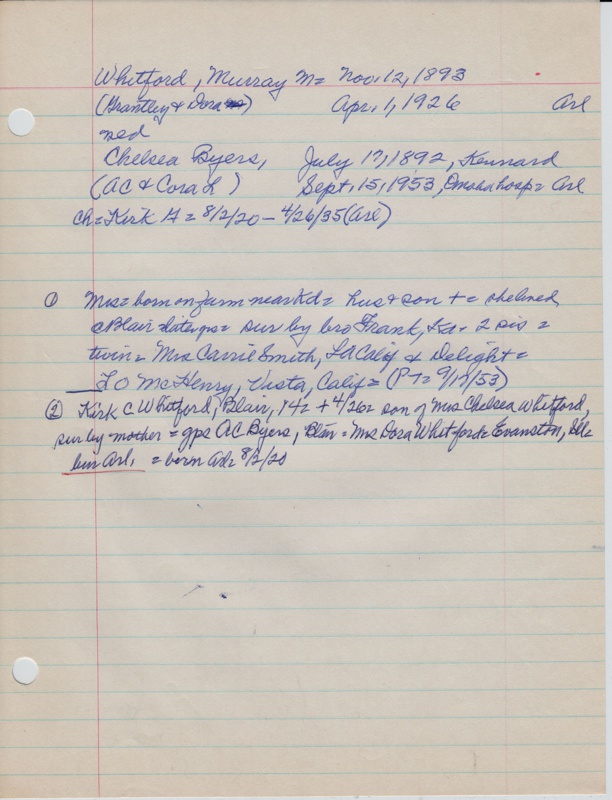 Whitford, Murray M= Nov. 12, 1893
(Grantley & Dora) Apr. 1, 1926 Arl
med
Chelsea Byers, July 17, 1892, Kennard
(AC & Cora L) Sept. 15, 1953, Omaha hosp= Arl
ch= Kirk = 8/2/20 - 4/26/35 (Arl)
① Mrs= born on farm near Kd= hus & son += she lived
c Blair = sur by bro Frank, 2 sis =
twin= Mrs Carrie Smith, LA Calif & Delight=
L O McHenry, Vista, Calif= (PT= 9/17/53)
② Kirk C Whitford, Blair, 14= + 4/26= son of Mrs Chelsea Whitford,
sur by mother = gps AC Byers, Blair = Mrs Dora Whitford= Evanston, Ill=
bur Arl, = born 8/2/20